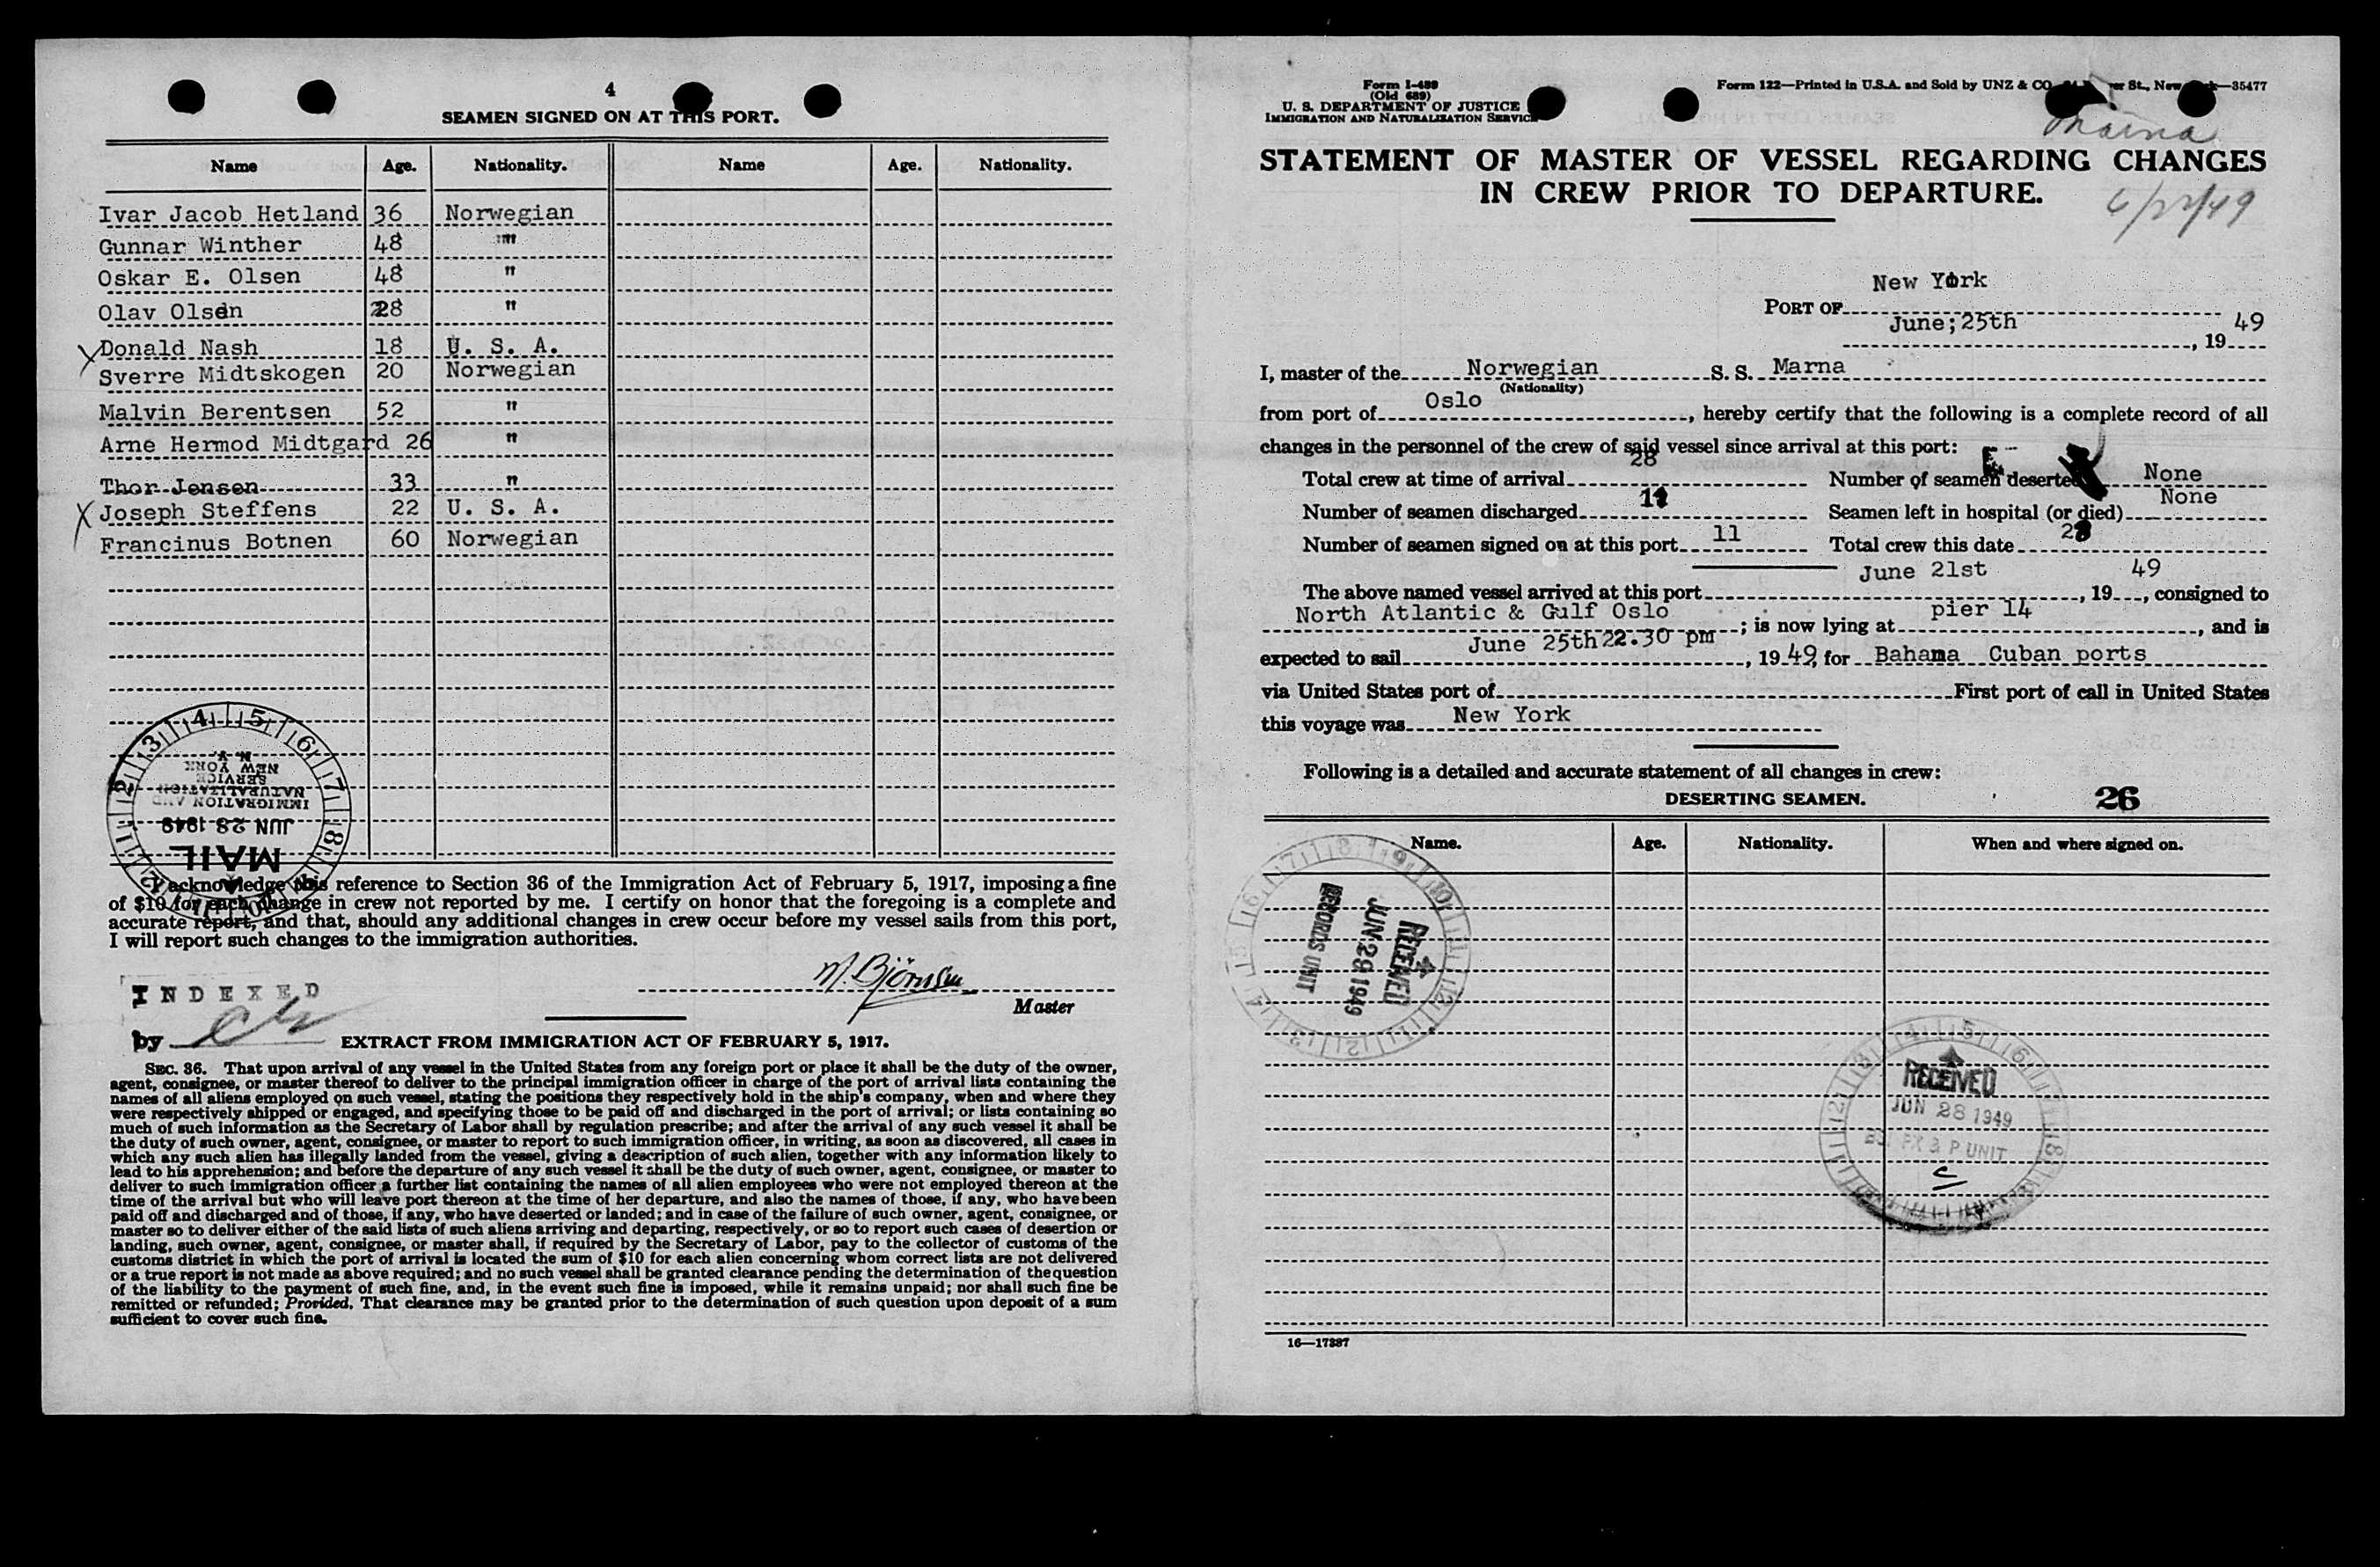 4
SEAMEN SIGNED ON AT THIS PORT.
Name Age. Nationality. Name Age. Nationality.
Ivar Jacob Hetland 36 Norwegian
Gunnar Winther 48 "
Oskar E. Olsen 48 "
Olav Olsen 28 "
X Donald Nash 18 U. S. A.
Sverre Midtskogen 20 Norwegian
Malvin Berentsen 52 "
Arne Hermod Midtgard 26 "
Thor Jensen 33 "
X Joseph Steffens 22 U. S. A.
Francinus Botnen 60 Norwegian
IMMIGRATION AND
NATURALIZATION
SERVICE
NEW YORK
N. Y.
JUN 28 1949
MAIL
I acknowledge this reference to Section 36 of the Immigration Act of February 5, 1917, imposing a fine
of $10 for each change in crew not reported by me. I certify on honor that the foregoing is a complete and
accurate report, and that, should any additional changes in crew occur before my vessel sails from this port,
I will report such changes to the immigration authorities.
Master
INDEXED
by
EXTRACT FROM IMMIGRATION ACT OF FEBRUARY 5, 1917.
SEC. 36. That upon arrival of any vessel in the United States from any foreign port or place it shall be the duty of the owner,
agent, consignee, or master thereof to deliver to the principal immigration officer in charge of the port of arrival lists containing the
names of all aliens employed on such vessel, stating the positions they respectively hold in the ship's company, when and where they
were respectively shipped or engaged, and specifying those to be paid off and discharged in the port of arrival; or lists containing so
much of such information as the Secretary of Labor shall by regulation prescribe; and after the arrival of any such vessel it shall be
the duty of such owner, agent, consignee, or master to report to such immigration officer, in writing, as soon as discovered, all cases in
which any such alien has illegally landed from the vessel, giving a description of such alien, together with any information likely to
lead to his apprehension; and before the departure of any such vessel it shall be the duty of such owner, agent, consignee, or master to
deliver to such immigration officer a further list containing the names of all alien employees who were not employed thereon at the
time of the arrival but who will leave port thereon at the time of her departure, and also the names of those, if any, who have been
paid off and discharged and of those, if any, who have deserted or landed; and in case of the failure of such owner, agent, consignee, or
master so to deliver either of the said lists of such aliens arriving and departing, respectively, or so to report such cases of desertion or
landing, such owner, agent, consignee, or master shall, if required by the Secretary of Labor, pay to the collector of customs of the
customs district in which the port of arrival is located the sum of $10 for each alien concerning whom correct lists are not delivered
or a true report is not made as above required; and no such vessel shall be granted clearance pending the determination of the question
of the liability to the payment of such fine, and, in the event such fine is imposed, while it remains unpaid; nor shall such fine be
remitted or refunded; Provided, That clearance may be granted prior to the determination of such question upon deposit of a sum
sufficient to cover such fine.
Form I-489
(Old 689)
U. S. DEPARTMENT OF JUSTICE
IMMIGRATION AND NATURALIZATION SERVICE
Form 122—Printed in U.S.A. and Sold by UNZ & CO. St., New —35477
Marna
STATEMENT OF MASTER OF VESSEL REGARDING CHANGES
IN CREW PRIOR TO DEPARTURE.
PORT OF New York
June; 25th, 1949
I, master of the Norwegian S. S. Marna
(Nationality)
from port of Oslo, hereby certify that the following is a complete record of all
changes in the personnel of the crew of said vessel since arrival at this port:
Total crew at time of arrival 28 Number of seamen deserted None
Number of seamen discharged Seamen left in hospital (or died) None
Number of seamen signed on at this port 11 Total crew this date
The above named vessel arrived at this port June 21st, 1949, consigned to
North Atlantic & Gulf Oslo; is now lying at pier 14, and is
expected to sail June 25th 22.30 pm, 1949, for Bahama Cuban ports
via United States port of First port of call in United States
this voyage was New York
Following is a detailed and accurate statement of all changes in crew:
DESERTING SEAMEN. 26
Name. Age. Nationality. When and where signed on.
RECEIVED
JUN 29 1949
RECORDS UNIT
RECEIVED
JUN 28 1949
P UNIT
16—17387